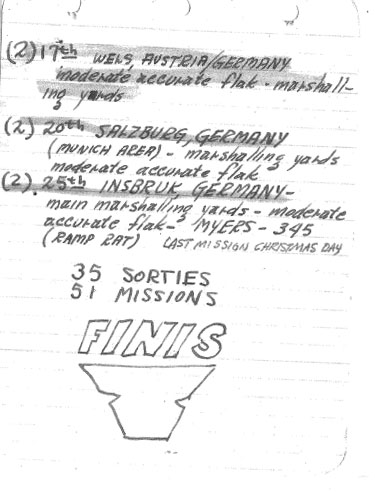 (2) 17th WELS, AUSTRIA/GERMANY
moderate accurate flak - marshall-
ing yards
(2) 20th SALZBURG, GERMANY
(MUNICH AREA) - marshalling yards
moderate accurate flak
(2). 25th INSBRUK GERMANY -
main marshalling yards - moderate
accurate flak - MYERS - 345
(RAMP RAT) LAST MISSION CHRISTMAS DAY
35 SORTIES
51 MISSIONS
FINIS